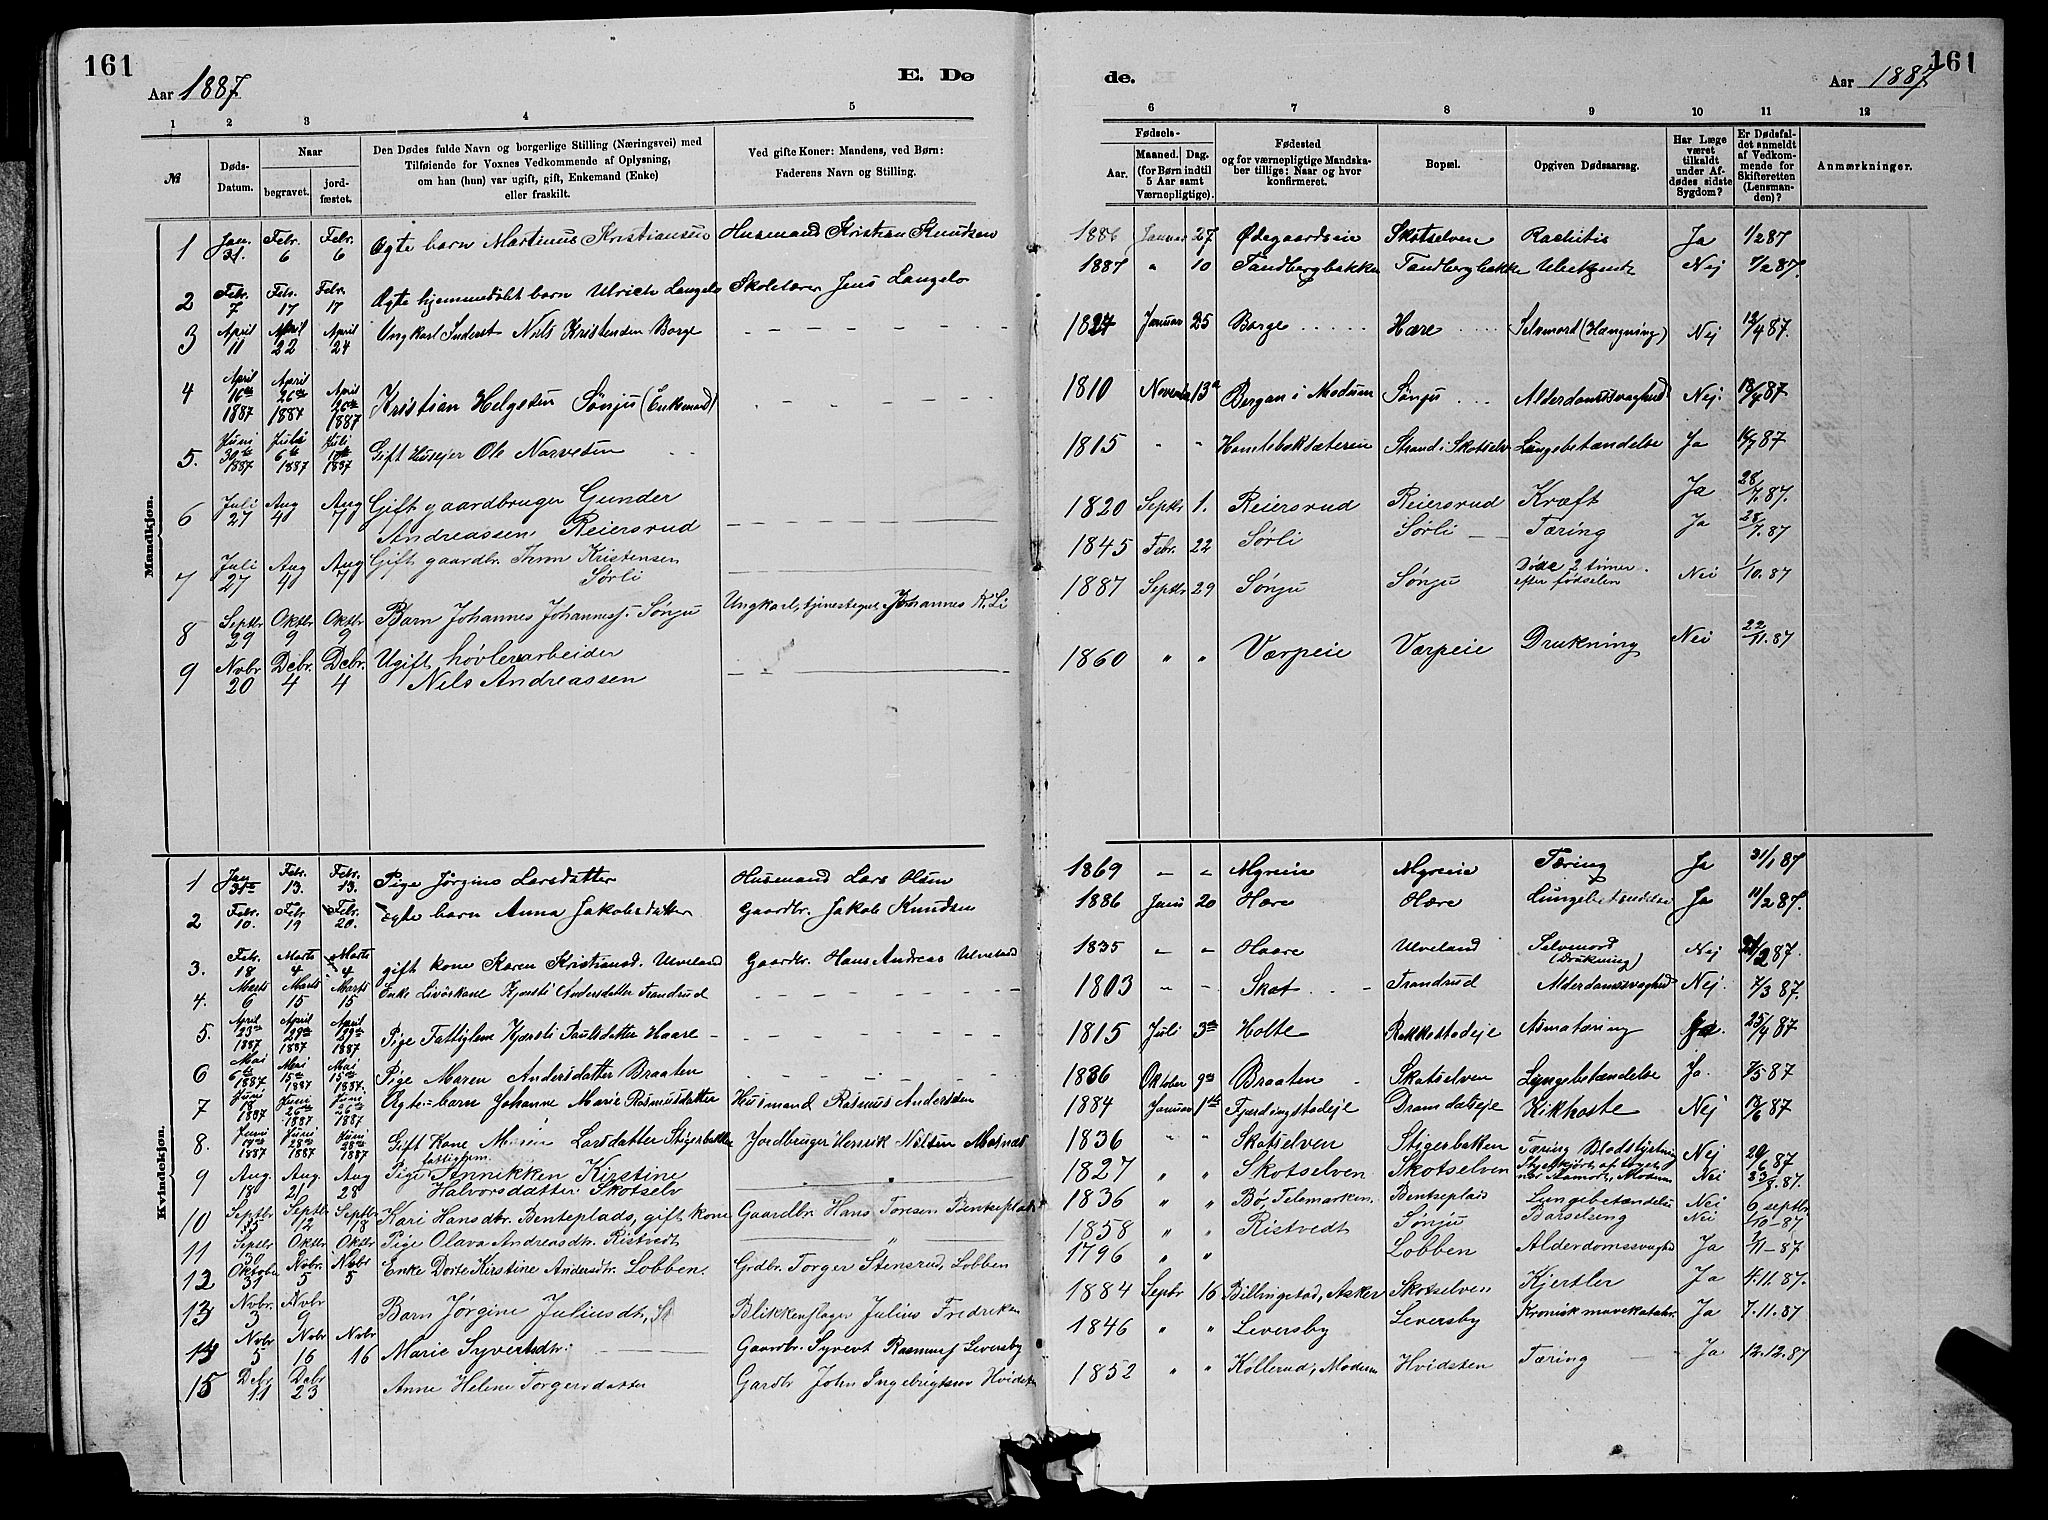 161
Aar 1887
E. Dø
1 2 3 4 5
№
Døds-Datum.
Naar
begravet.
jordfæstet.
Den Dødes fulde Navn og borgerlige Stilling (Næringsvei) med
Tilføiende for Voxnes Vedkommende af Oplysning,
om han (hun) var ugift, gift, Enkemand (Enke)
eller fraskilt.
Ved gifte Koner: Mandens, ved Børn:
Faderens Navn og Stilling.
Mandkjøn.
1 Jan. 31. Febr. 6 Febr. 6 Ægte barn Martinus Kristiansen Husmand Kristian Knudsen
2 Febr. 7 Febr. 17 Febr. 17 Ægte hjemmedøbt barn Ulrich Langelo Skolelærer Jens Langelo
3 April 11 April 22 April 24 Ungkarl Inderst Nils Kristensen Borge
4 April 16de 1887 April 26de 1887 April 26de 1887 Kristian Helgesen Sønju (Enkemand)
5. Juni 30te 1887 Juli 6te 1887 Juli 1887 Gift Husejer Ole Narvesen
6 Juli 27 Aug 4 Aug 7 Gift gaardbruger Gunder
Andreassen Reiersrud
7 Juli 27 Aug 4 Aug 7 Gift gaardbr. Thom Kristensen
Sørli
8 Septbr 29 Oktbr 9 Oktbr 9 Barn Johannes Johanness. Sønju Ungkarl, tjenestegut, Johannes K. Li
9 Novbr 20 Debr. 4 Debr. 4 Ugift høvleriarbeider
Nils Andreassen
Kvindekjøn.
1 Jan 31te Febr. 13. Febr. 13. Pige Jørgine Larsdatter Husmand Lars Olsen
2 Febr. 10. Febr 19 Febr. 20. ægte barn Anna Jakobsdatter Gaardbr. Jakob Knudsen
3. Febr. 18 Marts 4 Marts 4 gift kone Karen Kristiansd. Ulveland Gaardbr. Hans Andreas Ulveland
4. Marts 6 Marts 15 Marts 15 Enke Livøskone Kjersti Andersdatter Trandrud
5. April 23de 1887 April 29de 1887 April 29de 1887 Pige Fattiglem Kjersti Paulsdatter Haare
6 Mai 6te 1887. Mai 15de 1887 Mai 15de 1887. Pige Maren Andersdatter Braaten
7 Juni 18 1887 Juni 26de 1887 Juni 26de 1887 Ægte barn Johanne Marie Rasmusdatter Husmand Rasmus Anderssen
8. Juni 1887 Juni 28de 1887 Juni 28de 1887 Gift Kone Maren Larsdatter Stigerbakken Jordbruger Henrik Nilsen
9 Aug. 18 Aug. 21 Aug 28 Pige fattiglem. Annikken Kirstine
Halvorsdatter Skotselv
10 Septbr Septbr 12 Septbr 18 Kari Hansdtr. Benteplads, gift kone Gaardbr. Hans Toresen Benteplads
11 Septbr 30 Oktbr Oktbr Pige Olava Andreasdtr. Ristvedt
12 Oktober 31 Novbr. 5 Novbr 5 Enke Dorte Kirstine Andersdtr. Lobben. Grdbr. Torger Stensrud Lobben
13 Novbr. 3 Novbr 9 Barn Jørgine Juliusdtr. Blikkenslager Julius Fredriksen
14 Novbr 5 Novbr 16 Novbr 16 Marie Syvertsdtr. Gaardbr. Syvert Rasmuss. Leversby
15 Debr. 11 Debr 23 Anne Helene Torgersdatter Gardbr John Ingebrigtsen Hvidsten
161
Aar 1887
de.
6 7 8 9 10 11 12
Fødsels-
Aar.
Maaned. Dag.
(for Børn indtil
5 Aar samt
Værnepligtige).
Fødested
og for værnepligtige Mandska-
ber tillige: Naar og hvor
konfirmeret.
Bopæl.
Opgiven Dødsaarsag.
Har Læge
været
tilkaldt
under Af-
dødes sidste
Sygdom?
Er Dødsfal-
det anmeldt
af Vedkom-
mende for
Skifteretten
(Lensman-
den)?
Anmærkninger.
1886 Januar 27 Ødegaardseie Skotselven Rachitis Ja 1/2 87
1887 " 10 Tandbergbakken Tandbergbakke Ubekjendt Nej 7/2 87.
1827 Januar 25 Borge Hære Selvmord (Hængning) Nej 12/4 87.
1810 November 13de Bergan i Modum Sønju Alderdomssvaghed Nej. 18/4 87
1815 " " Strand i Skotselv Lungebetændelse Ja 87
1820 Septbr 1. Reiersrud Reiersrud Kræft Ja 28/7. 87.
1845 Febr. 22 Sørli Sørli Tæring Ja 28/7. 87
1887 Septbr 29 Sønju Sønju Døde 2 timer
efter fødselen Nei 1/10. 87
1860 " " Værpeie Værpeie Drukning Nei 22/11. 87
1869 Myreeie Myreeie Tæring Ja 31/1 87
1886 Janu 20 Hære Hære Lungebetændelse Ja 11/2 87.
1835 Haare Ulveland Selvmord
(Drukning) Nej /2 87.
1803 Skot Trandrud Alderdomssvaghed Nej. 7/3 87.
1815 Juli 3de Holte Rakkestadeje Asmatæring Ja. 25/4 87
1836 Oktober 9de Braaten Skotselven Lungebetændelse Ja. 7/5 87
1884 Januar 1ste Fjerdingstadeje Dramdalseje Kikhoste Nej 18/6 87
1836 " " Skotselven Stigerbakken Tæring Blodstyrtning Nej 20/6 87
1827 " " Skotselven Skotselven Nei 23/8. 87.
1836 " " Bø, Telemarken. Benteplads Lungebetændelse Nei 6 septbr
1858 " " Ristvedt Sønju Barselseng Nei 1/10-87
1796 " " Lobben Alderdomssvaghed Ja 1/11-87
1884 Sepbr 16 Billingstad, Asker Skotselven Kjertler Ja 4. 11. 87.
1846 " " Leversby Leversby Kronisk mavekatahr Ja 7. 11. 87
1852 " " Kollerud, Modum Hvidsten Tæring Ja 12. 12. 87